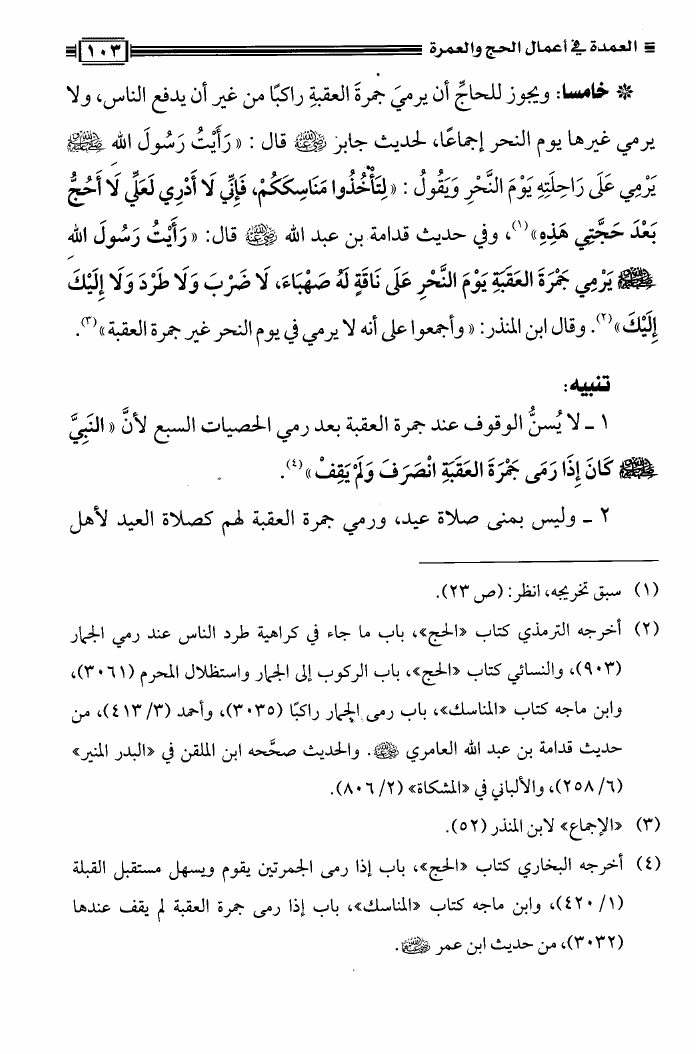 العمدة في أعمال الحج والعمرة ١٠٣
* خامسا: ويجوز للحاجِّ أن يرميَ جمرةَ العقبةِ راكبًا من غير أن يدفع الناس، ولا
يرمي غيرها يوم النحر إجماعًا، لحديث جابرٍ ﵁ قال : « رَأَيْتُ رَسُولَ اللهِ ﷺ
يَرْمِي عَلَى رَاحِلَتِهِ يَوْمَ النَّحْرِ وَيَقُولُ : «لِتَأْخُذُوا مَنَاسِكَكُمْ، فَإِنِّي لَا أَدْرِي لَعَلِّي لَا أَحُجُّ
بَعْدَ حَجَّتِي هَذِهِ»(١)، وفي حديث قدامة بن عبد الله ﵁ قال: « رَأَيْتُ رَسُولَ اللهِ
ﷺ يَرْمِي جَمْرَةَ العَقَبَةِ يَوْمَ النَّحْرِ عَلَى نَاقَةٍ لَهُ صَهْبَاءَ، لَا ضَرْبَ وَلَا طَرْدَ وَلَا إِلَيْكَ
إِلَيْكَ»(٢). وقال ابن المنذر: « وأجمعوا على أنه لا يرمي في يوم النحر غير جمرة العقبة»(٣).
تنبيه:
١ ـ لا يُسنُّ الوقوف عند جمرة العقبة بعد رمي الحصيات السبع لأنَّ « النَبِيَّ
ﷺ كَانَ إِذَا رَمَى جَمْرَةَ العَقَبَةِ انْصَرَفَ وَلَمْ يَقِفْ»(٤).
٢ ـ وليس بمنى صلاة عيد، ورمي جمرة العقبة لهم كصلاة العيد لأهل
(١) سبق تخريجه، انظر: (ص ٢٣).
(٢) أخرجه الترمذي كتاب «الحج»، باب ما جاء في كراهية طرد الناس عند رمي الجمار
(٩٠٣)، والنسائي كتاب «الحج»، باب الركوب إلى الجمار واستظلال المحرم (٣٠٦١)،
وابن ماجه كتاب «المناسك»، باب رمى الجمار راكبًا (٣٠٣٥)، وأحمد (٤١٣/٣)، من
حديث قدامة بن عبد الله العامري ﵁. والحديث صحَّحه ابن الملقن في «البدر المنير»
(٢٥٨/٦)، والألباني في «المشكاة» (٨٠٦/٢).
(٣) «الإجماع» لابن المنذر (٥٢).
(٤) أخرجه البخاري كتاب «الحج»، باب إذا رمى الجمرتين يقوم ويسهل مستقبل القبلة
(٤٢٠/١)، وابن ماجه كتاب «المناسك»، باب إذا رمى جمرة العقبة لم يقف عندها
(٣٠٣٢)، من حديث ابن عمر ﵄.